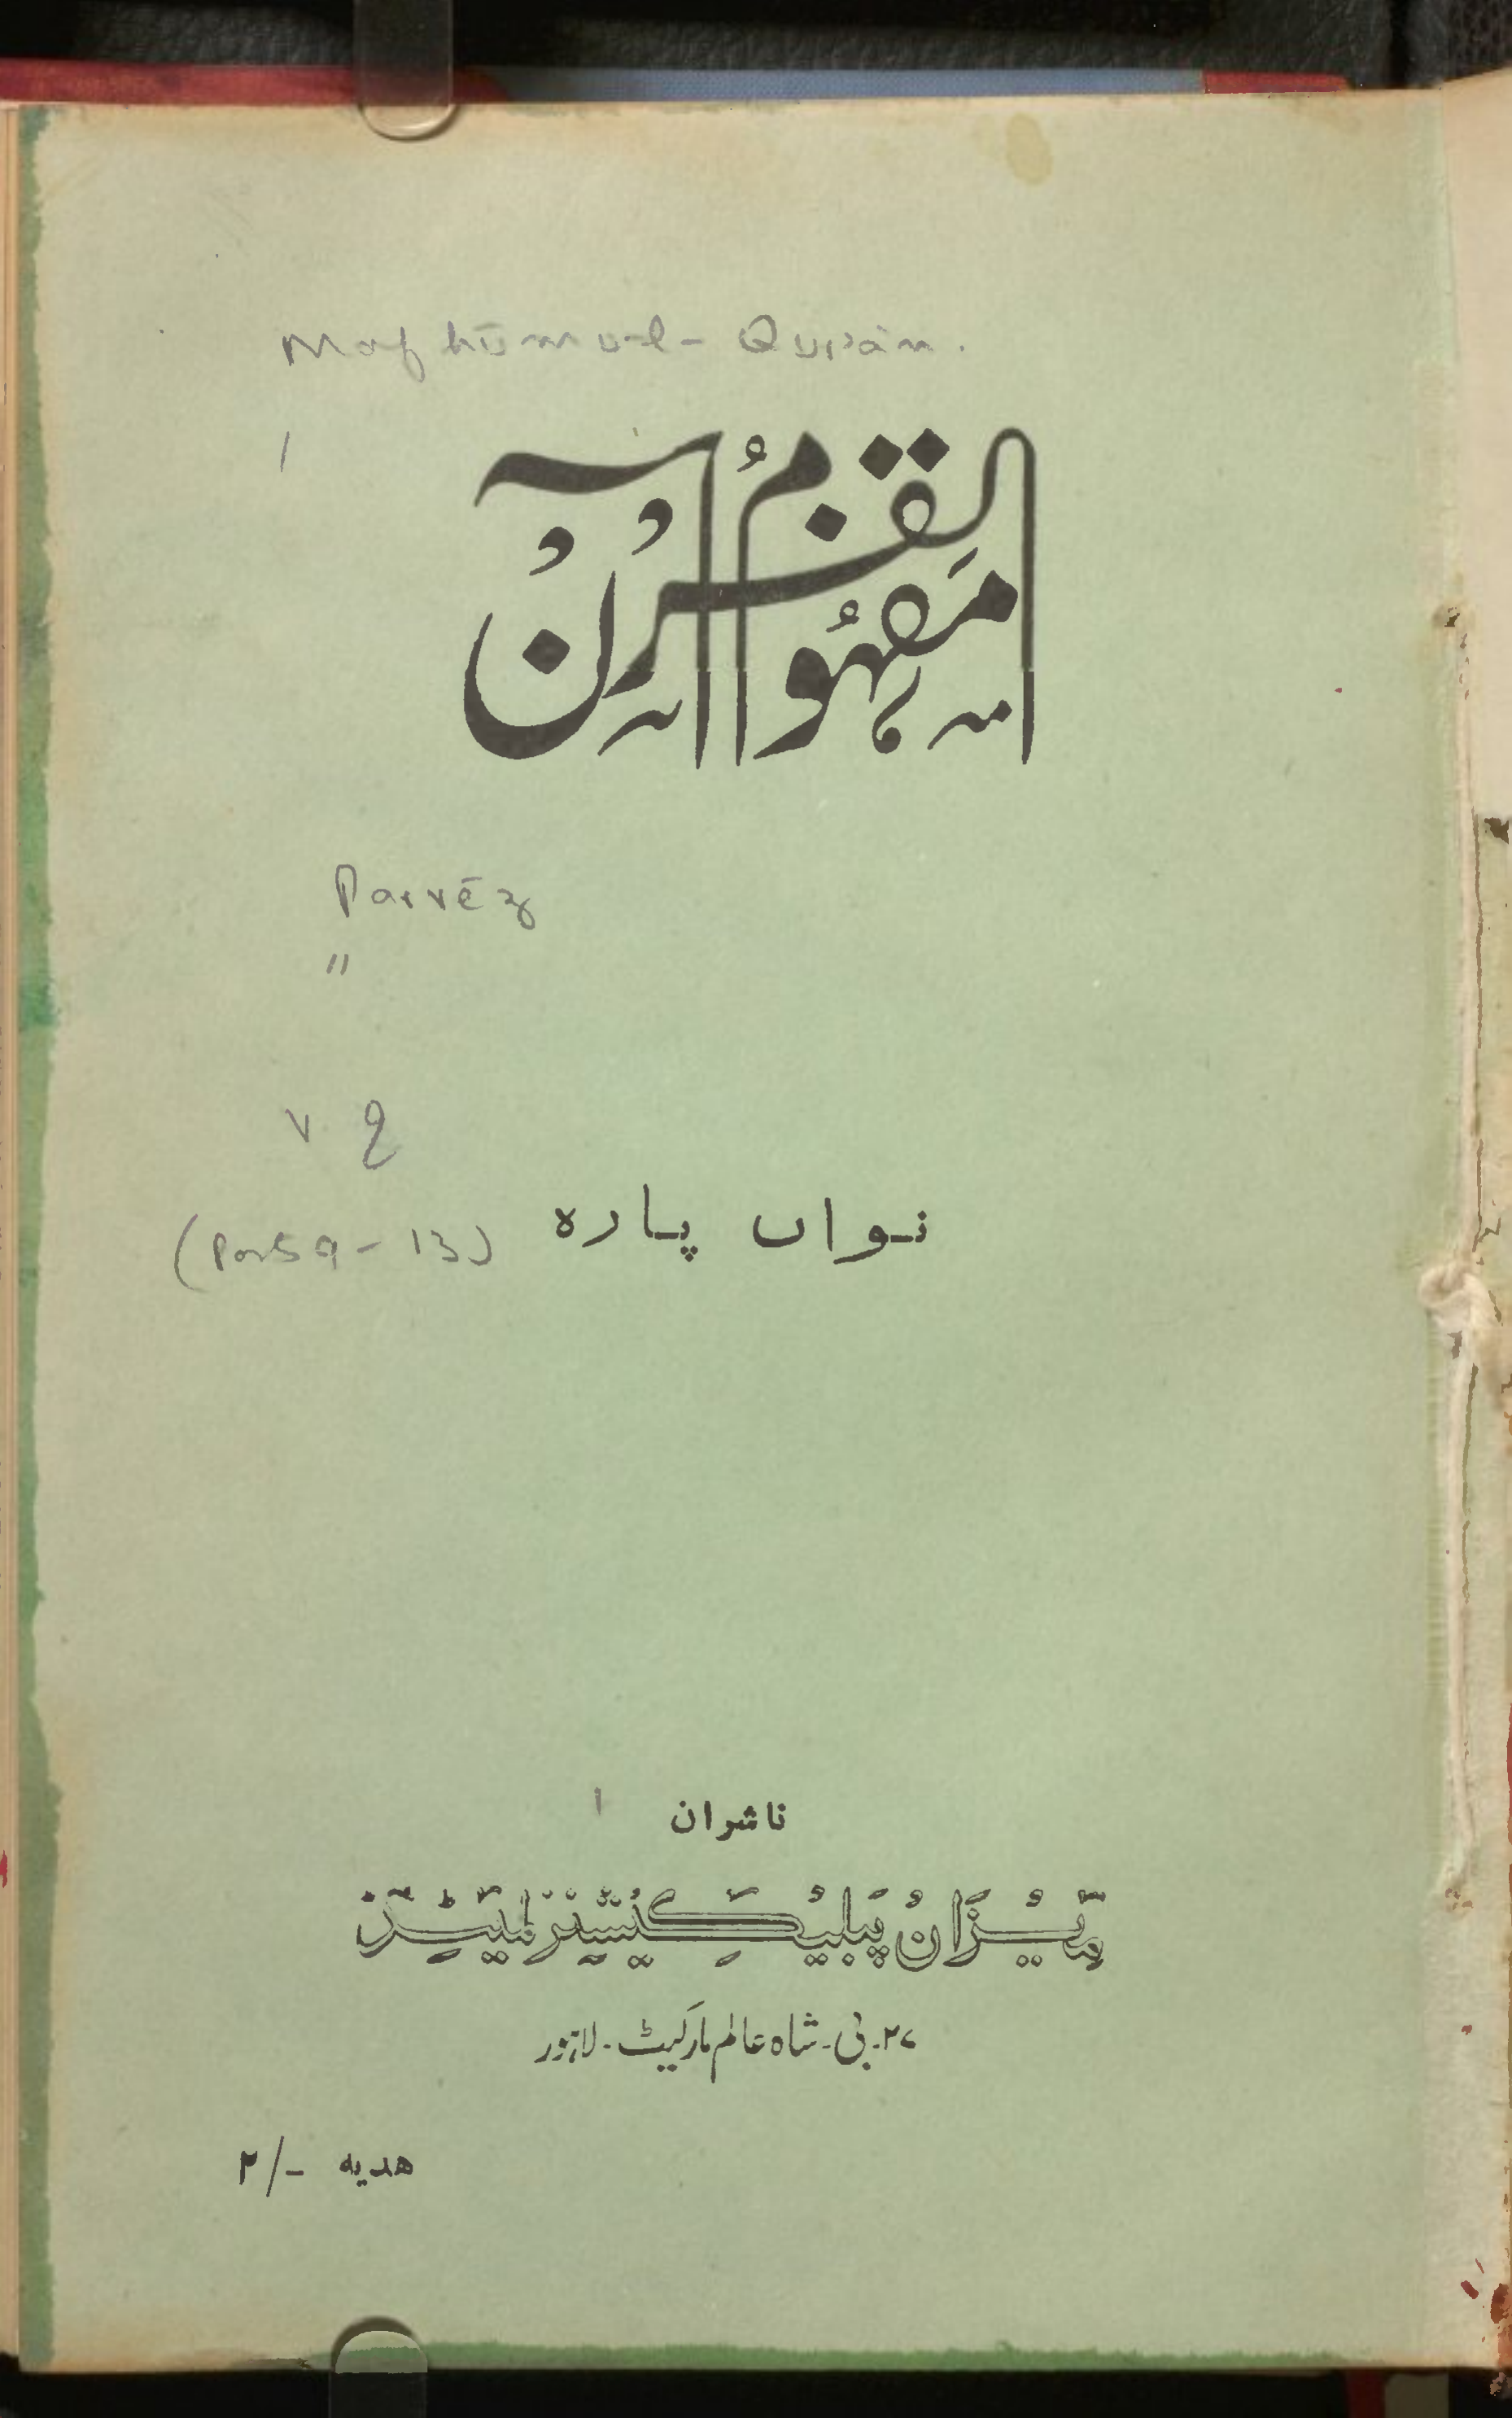 Mafhūmul-Qurān.
مَفہُومُ القُرآن
Parvēz
"
v 9
نواں پارہ (Part 9-13)
ناشران
میزان پبلیکیشنز لمیٹڈ
۲۷۔بی۔شاہ عالم مارکیٹ۔لاہور
ھدیہ -/۲